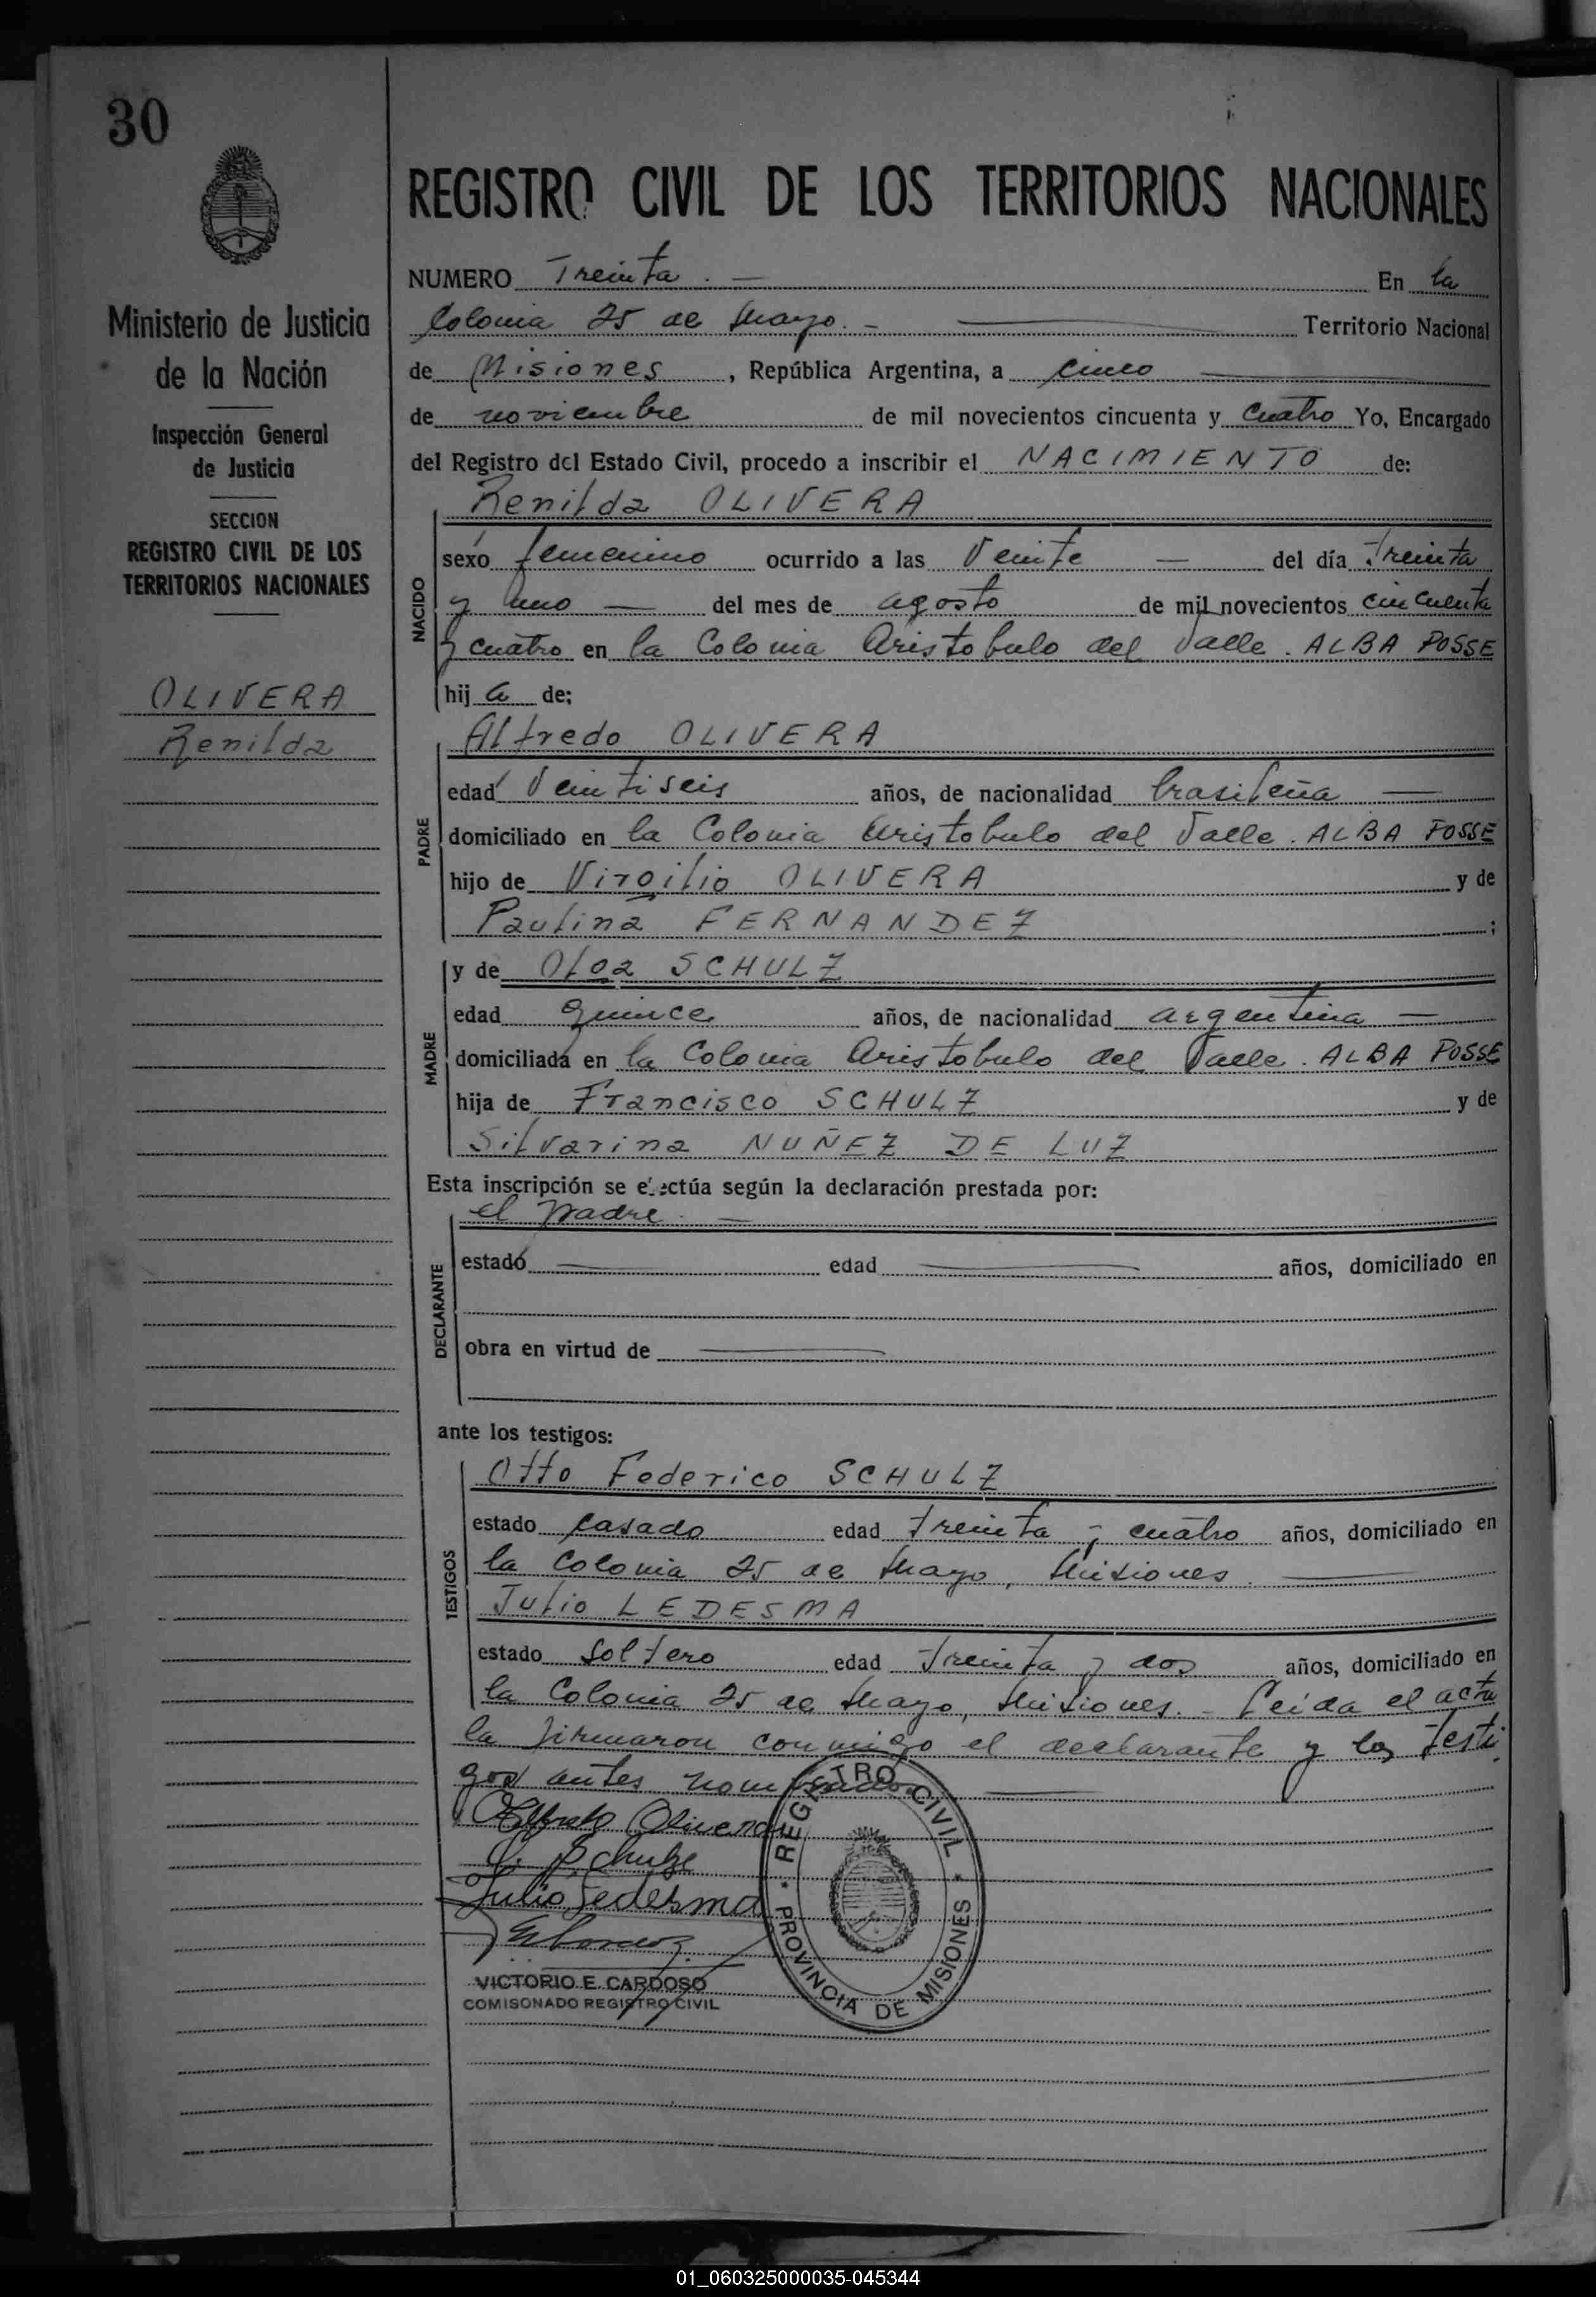 30
REGISTRO CIVIL DE LOS TERRITORIOS NACIONALES
Ministerio de Justicia
de la Nación
Inspección General
de Justicia
SECCION
REGISTRO CIVIL DE LOS
TERRITORIOS NACIONALES
OLIVERA
Renilda
NUMERO Treinta . — En la
Colonia 25 de Mayo. - — Territorio Nacional
de Misiones , República Argentina, a cinco —
de noviembre de mil novecientos cincuenta y cuatro Yo, Encargado
del Registro del Estado Civil, procedo a inscribir el NACIMIENTO de:
Renilda OLIVERA
NACIDO
sexo femenino ocurrido a las Veinte — del día Treinta
y uno — del mes de agosto de mil novecientos cincuenta
y cuatro en la Colonia Aristobulo del Valle . ALBA POSSE
hij a de;
Alfredo OLIVERA
PADRE
edad Veintiseis años, de nacionalidad brasileña —
domiciliado en la Colonia Aristobulo del Valle . ALBA POSSE
hijo de Virgilio OLIVERA y de
Paulina FERNANDEZ ;
y de Olga SCHULZ
MADRE
edad quince años, de nacionalidad argentina —
domiciliada en la Colonia Aristobulo del Valle . ALBA POSSE
hija de Francisco SCHULZ y de
Silvarina NUÑEZ DE LUZ
Esta inscripción se efectúa según la declaración prestada por:
el padre . —
DECLARANTE
estado — edad — años, domiciliado en
obra en virtud de —
ante los testigos:
Otto Federico SCHULZ
TESTIGOS
estado casado edad treinta y cuatro años, domiciliado en
la Colonia 25 de Mayo, Misiones . —
Julio LEDESMA
estado soltero edad treinta y dos años, domiciliado en
la Colonia 25 de Mayo, Misiones. - Leída el acta
la firmaron conmigo el declarante y los testi
gos antes nombrados. —
Alfredo Olivera
O. Schulz
Julio Ledesma
REGISTRO CIVIL * PROVINCIA DE MISIONES *
VICTORIO E. CARDOSO
COMISONADO REGISTRO CIVIL
01_060325000035-045344